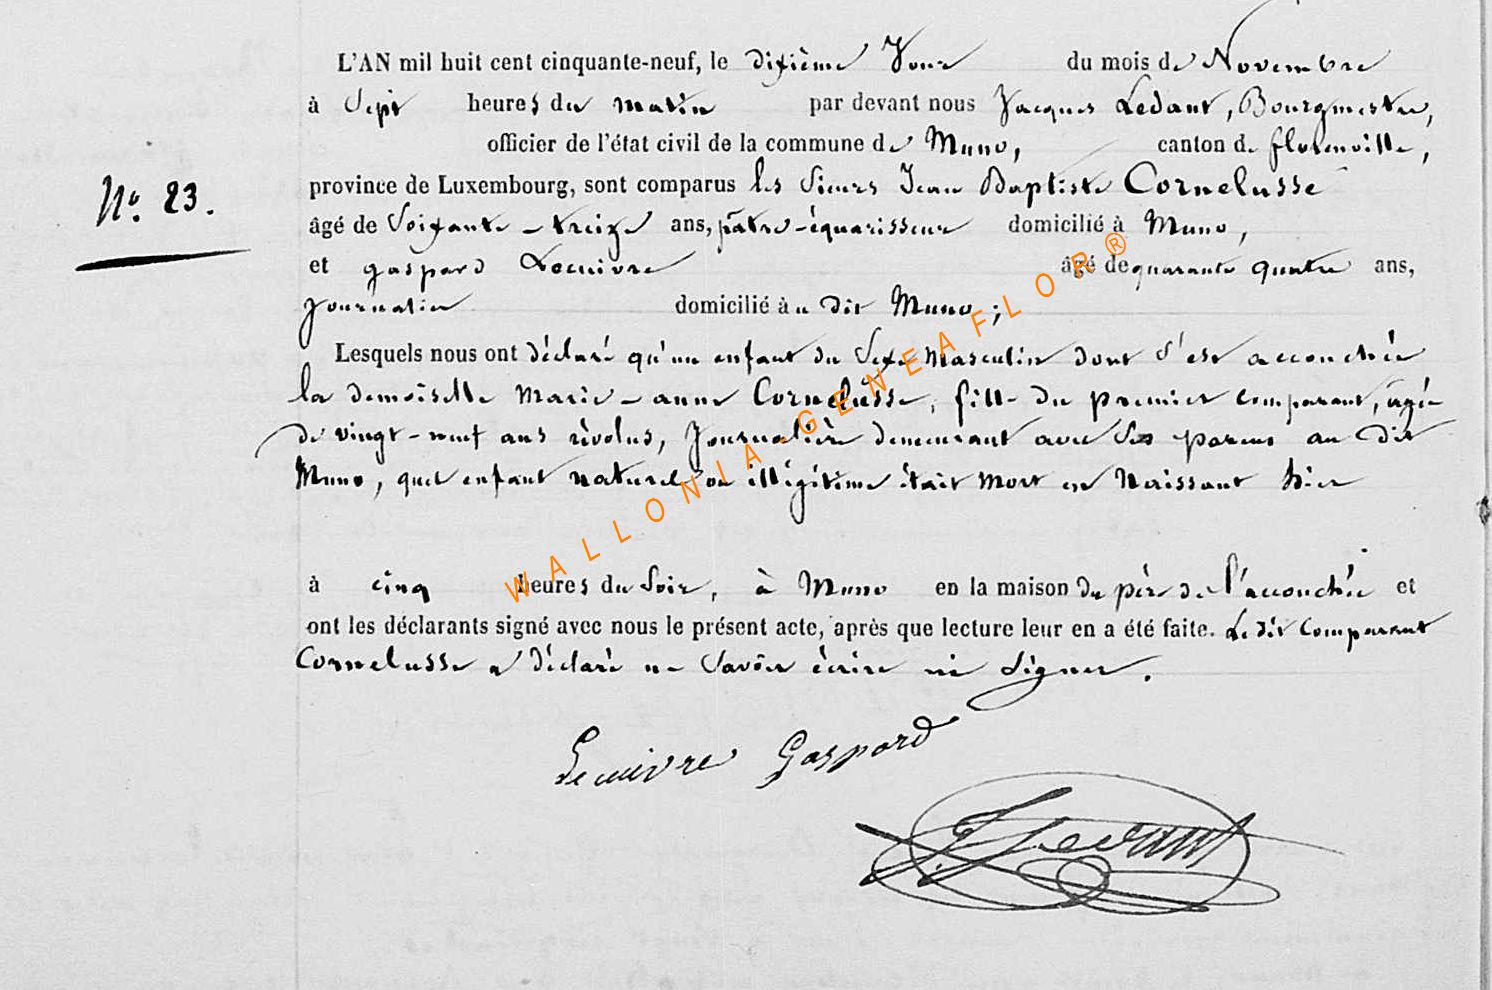 L'AN mil huit cent cinquante-neuf, le dixième Jour du mois de Novembre
à Sept heures du matin par devant nous Jacques Ledant, Bourgmestre,
officier de l'état civil de la commune de Muno, canton de florenville,
N.° 23. province de Luxembourg, sont comparus les Sieurs Jean Baptiste Cornelusse
âgé de Soixante-treize ans, pâtre-équarisseur domicilié à Muno,
et gaspard Lecuivre âgé de quarante quatre ans,
Journalier domicilié à u dit Muno;
Lesquels nous ont déclaré qu'un enfant du Sexe Masculin dont S'est accouchée
la demoiselle Marie-anne Cornelusse, fille du premier comparant, âgée
de vingt-neuf ans révolus, Journalière demeurant avec Ses parens au dit
Muno, quel enfant naturel ou illégitime était Mort en Naissant hier
à cinq heures du Soir, à Muno en la maison du père de l'accouchée et
ont les déclarants signé avec nous le présent acte, après que lecture leur en a été faite. Le dit Comparant
Cornelusse a déclaré ne Savoir écrire ni Signer.
Lecuivre Gaspard
J Ledant
WALLONIA-GENEAFLOR®